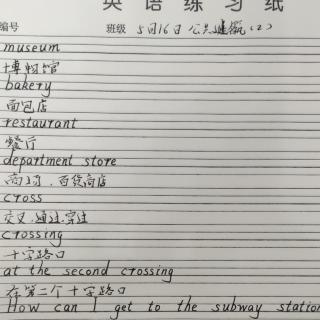 英语练习纸
编号 班级 5月16日 公共建筑(2)
museum
博物馆
bakery
面包店
restaurant
餐厅
department store
商场,百货商店
cross
交叉,通过,穿过
crossing
十字路口
at the second crossing
在第二个十字路口
How can I get to the subway station